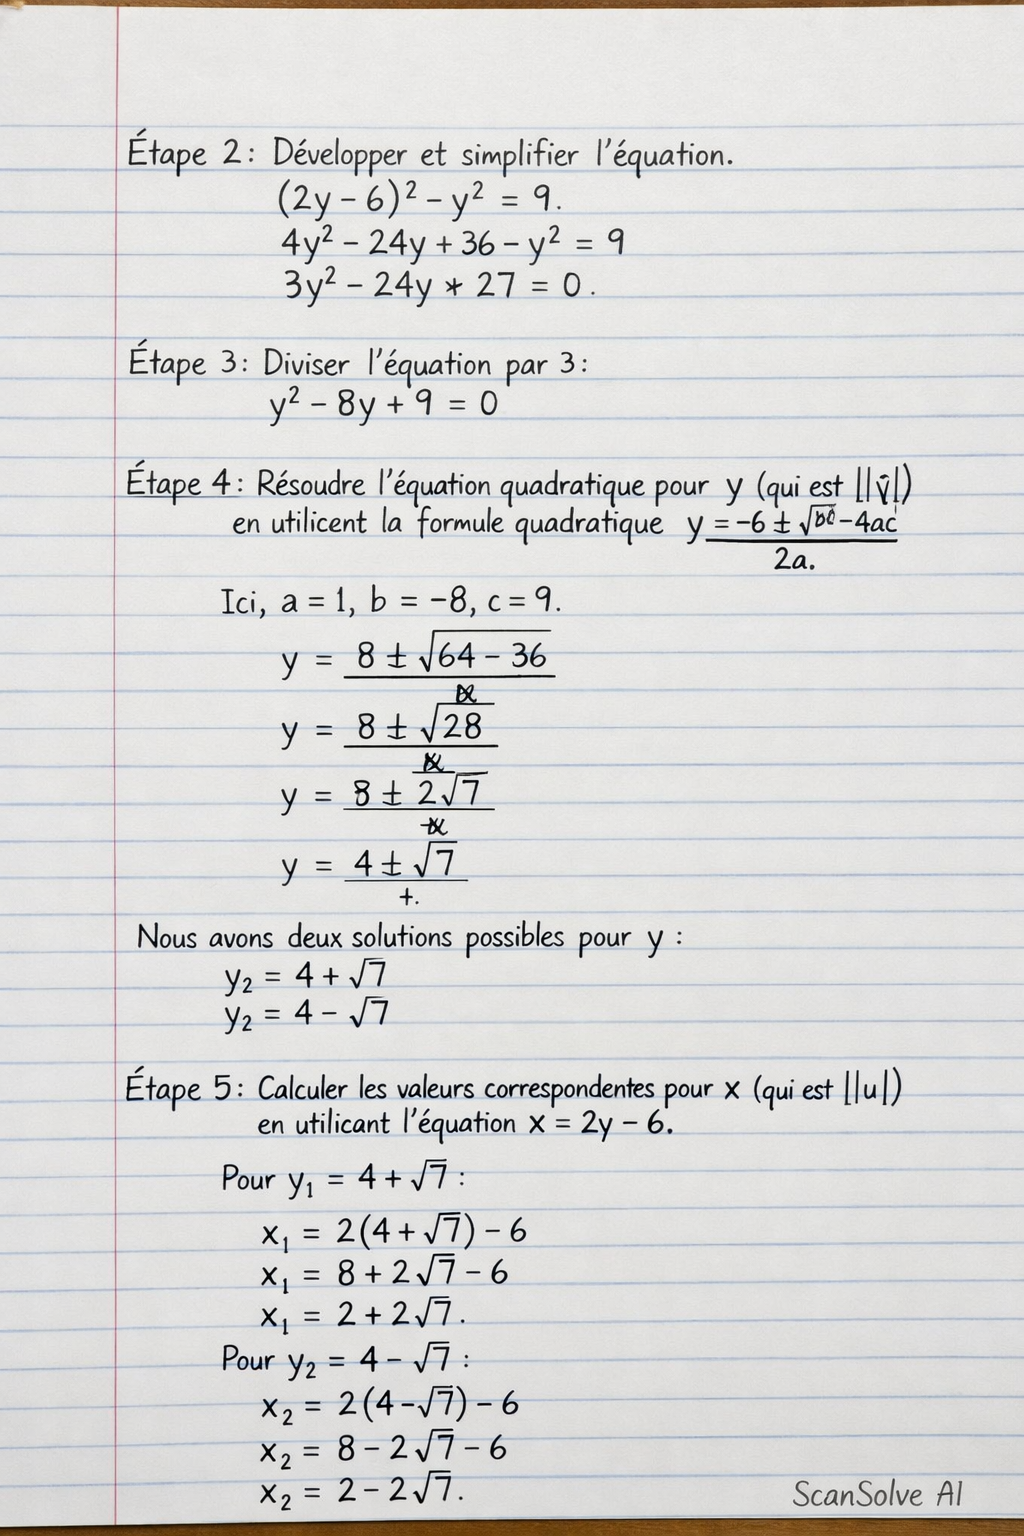 Étape 2: Développer et simplifier l'équation.
(2y - 6)² - y² = 9.
4y² - 24y + 36 - y² = 9
3y² - 24y * 27 = 0.
Étape 3: Diviser l'équation par 3:
y² - 8y + 9 = 0
Étape 4: Résoudre l'équation quadratique pour y (qui est ||v||)
en utilicent la formule quadratique y = -6 ± √ -4ac
2a.
Ici, a = 1, b = -8, c = 9.
y = 8 ± √64 - 36
y = 8 ± √28
y = 8 ± 2√7
y = 4 ± √7
+.
Nous avons deux solutions possibles pour y :
y₂ = 4 + √7
y₂ = 4 - √7
Étape 5: Calculer les valeurs correspondentes pour x (qui est ||u|)
en utilicant l'équation x = 2y - 6.
Pour y₁ = 4 + √7 :
x₁ = 2(4 + √7) - 6
x₁ = 8 + 2√7 - 6
x₁ = 2 + 2√7.
Pour y₂ = 4 - √7 :
x₂ = 2(4 - √7) - 6
x₂ = 8 - 2√7 - 6
x₂ = 2 - 2√7.
ScanSolve AI